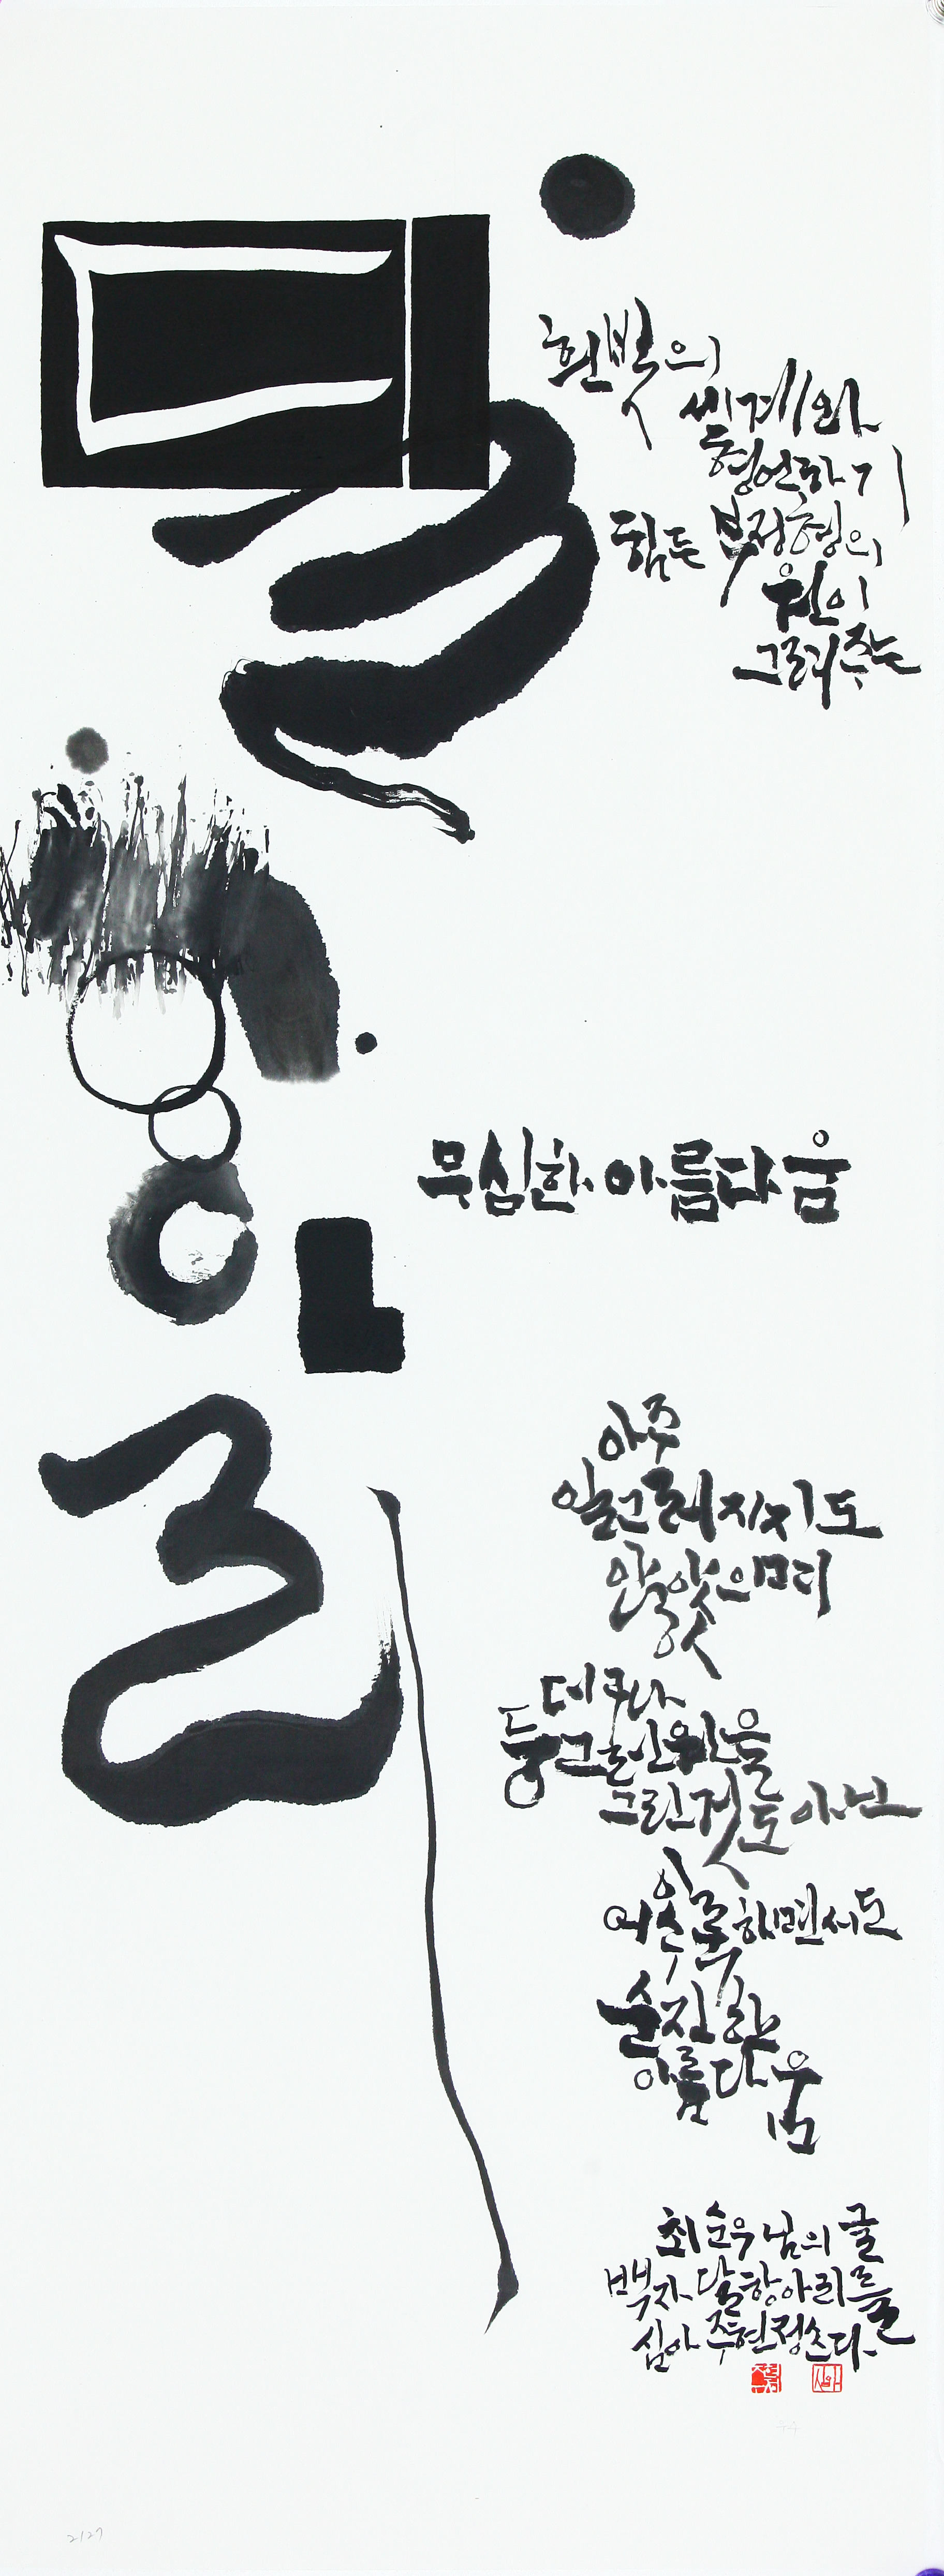 달항아리
흰빛의
세계와
형언하기
힘든 부정형의
원이
그려주는
무심한 아름다움
아주
일그러지지도
않았으며
더구나
둥그런 원을
그린 것도 아닌
어수룩하면서도
순진한
아름다움
최순우님의 글
백자 달항아리를
심아 주현정 쓰다
심아
2127